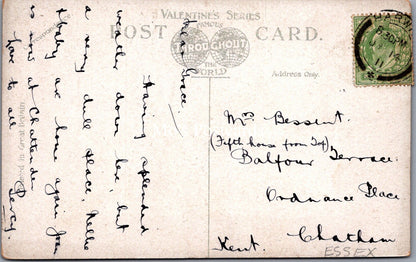 VALENTINE'S SERIES
FAMOUS
POST CARD.
THROUGHOUT
THE
WORLD
Address Only.
Printed in Great Britain
Dear Grace
Having splendid
weather down here, but
a very dull place, Nellie
& baby are home again Joe
is now at Chattenden
love to all
Percy.
Mrs Bessent.
(Fifth house from Top)
Balfour Terrace.
Ordnance Place
Chatham
Kent.
ESSEX